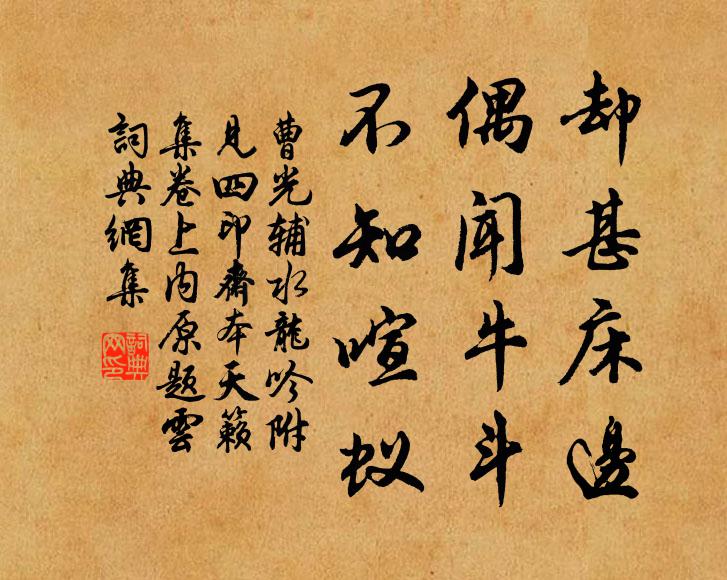 却甚床邊
偶闻牛斗
不知喧蚁
曹光辅水龍吟附
見四印齋本天籟
集卷上内原題雲
詞典網集
詞典網印